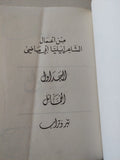 من أعمال
الشاعر إيليا أبي ماضي
الجداول
الخمائل
تبر وتراب